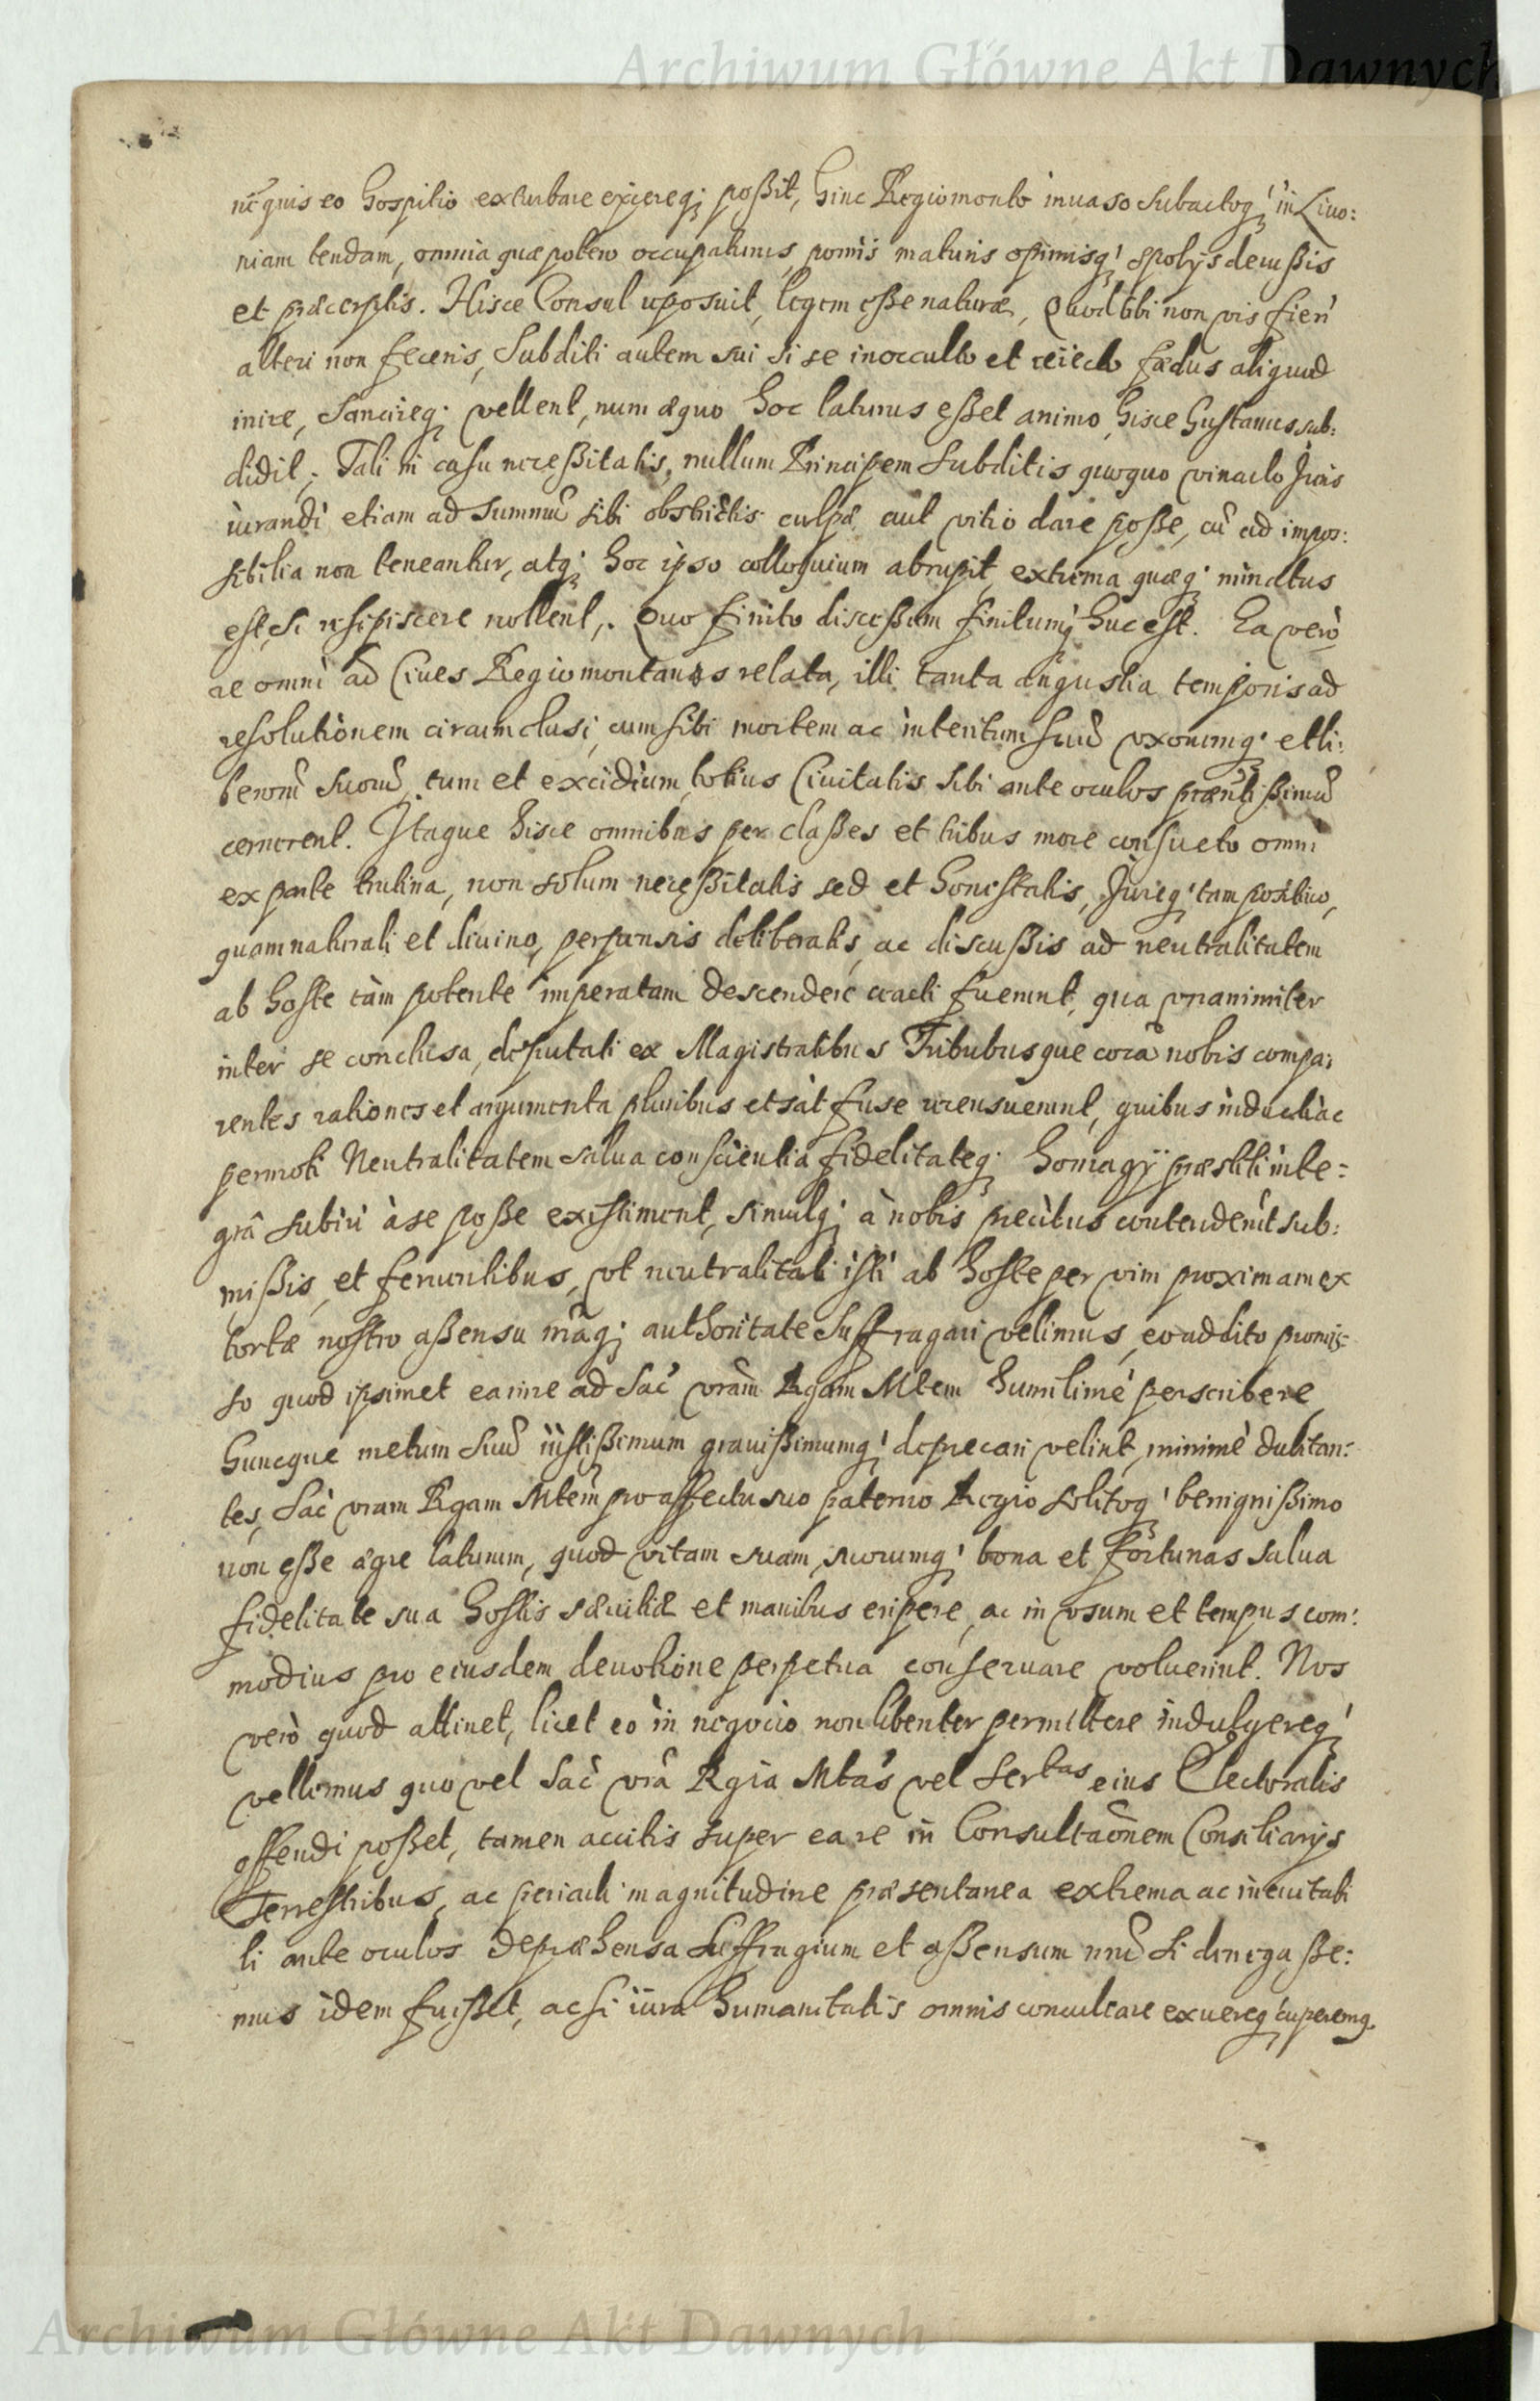 Archiwum Główne Akt Dawnych
nē quis eo hospitio exturbare eÿcereq; poßit, hinc Regiomonto inuaso subactoq; in Liuo:
niam tendam, omnia quæ potero occupaturus, pomis maturis opimisq; spolÿs decußis
et præcerptis. Hisce Consul reposuit, legem eße naturæ, Quod tibi non vis fieri
alteri non feceris, Subditi autem sui si se inocculto et reiecto fædus aliquod
inire, Sancireq; vellent, num æquo hoc laturus eßet animo, hisce Gustauus sub:
didit; Tali in casu neceßitatis, nullum Principem Subditis quoquo vinculo Juris
iurandi etiam ad Summū sibi obstrictis culpæ aut vitio dare poße, cū ad impos:
sibilia non teneantur, atq; hoc ipso colloquium abrupit, extrema quæq; minatus
est, si resipiscere nollent,. Quo finito discessum finitumq; huc est. Ea verò
re omni ad Ciues Regiomontanos relata, illi tanta angustia temporis ad
resolutionem circumclusi, cum sibi mortem ac interitum suū vxorumq; et li:
berorū suorū, tum et excidium totius Ciuitatis sibi ante oculos præsentißimū
cernerent. Itaque hisce omnibus per claßes et tribus more consueto omni
ex parte trutina, non solum neceßitatis sed et honestatis, Jureq; tam positiuo,
quam naturali et diuino, perpensis deliberatis, ac discußis ad neutralitatem
ab hoste tàm potente imperatam descendere coacti fuerunt, qua vnanimiter
inter se conclusa, deputati ex Magistratibus Tribubusque corā nobis compa:
rentes rationes et argumenta pluribus et sàt fuse recensuerunt, quibus inducti ac
permoti Neutralitatem salua conscientia fidelitateq; homagÿ præstiti inte=
grâ subiri à se poße existiment, simulq; à nobis precibus contenderūt sub:
mißis, et feruentibus, vt neutralitati isti ab hoste per vim proximam ex
tortæ nostro aßensu nrāq; authoritate Suffragari velimus, eo addito promis:
so quod ipsimet ea in re ad Sac̄ vram Rgam Mtem humilimè perscribere
huncque metum suū iustißimum grauißimumq; deprecari velint, minimè dubitan:
tes, Sac̄ vram Rgam Mtem pro affectu suo paterno Regio solitoq; benignißimo
non eße ægre laturum, quod vitam suam, suorumq; bona et fortunas salua
fidelitate sua hostis sæuitiæ et manibus eripere, ac in vsum et tempus com:
modius pro eiusdem deuotione perpetua conseruare voluerint. Nos
verò quod attinet, licet eo in negocio non libenter permittere indulgereq;
vellemus quo vel Sac̄ vrā Rgia Mtas vel Sertas eius Electoralis
offendi poßet, tamen accitis super ea re in Consultaōnem Consiliarÿs
Terrestribus, ac periculi magnitudine præsentanea extrema ac ineuitabi
li ante oculos depræhensa Suffragium et aßensum nrūm si denegaße:
mus idem fuißet, ac si iura humanitatis omnis conculcare exuereq; cuperemq.
Archiwum Główne Akt Dawnych